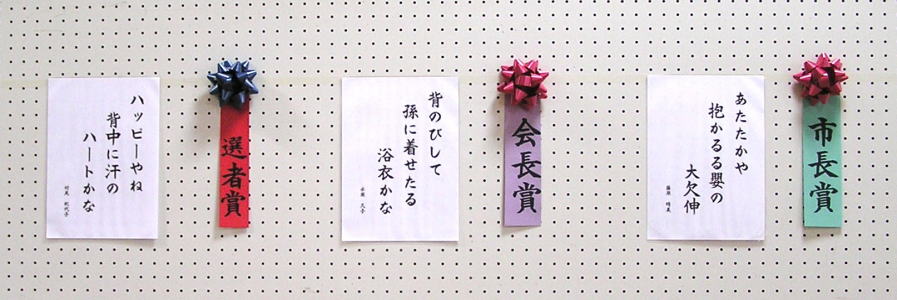 市長賞
あたたかや
抱かるる嬰の
大欠伸
会長賞
背のびして
孫に着せたる
浴衣かな
選者賞
ハッピーやね
背中に汗の
ハートかな